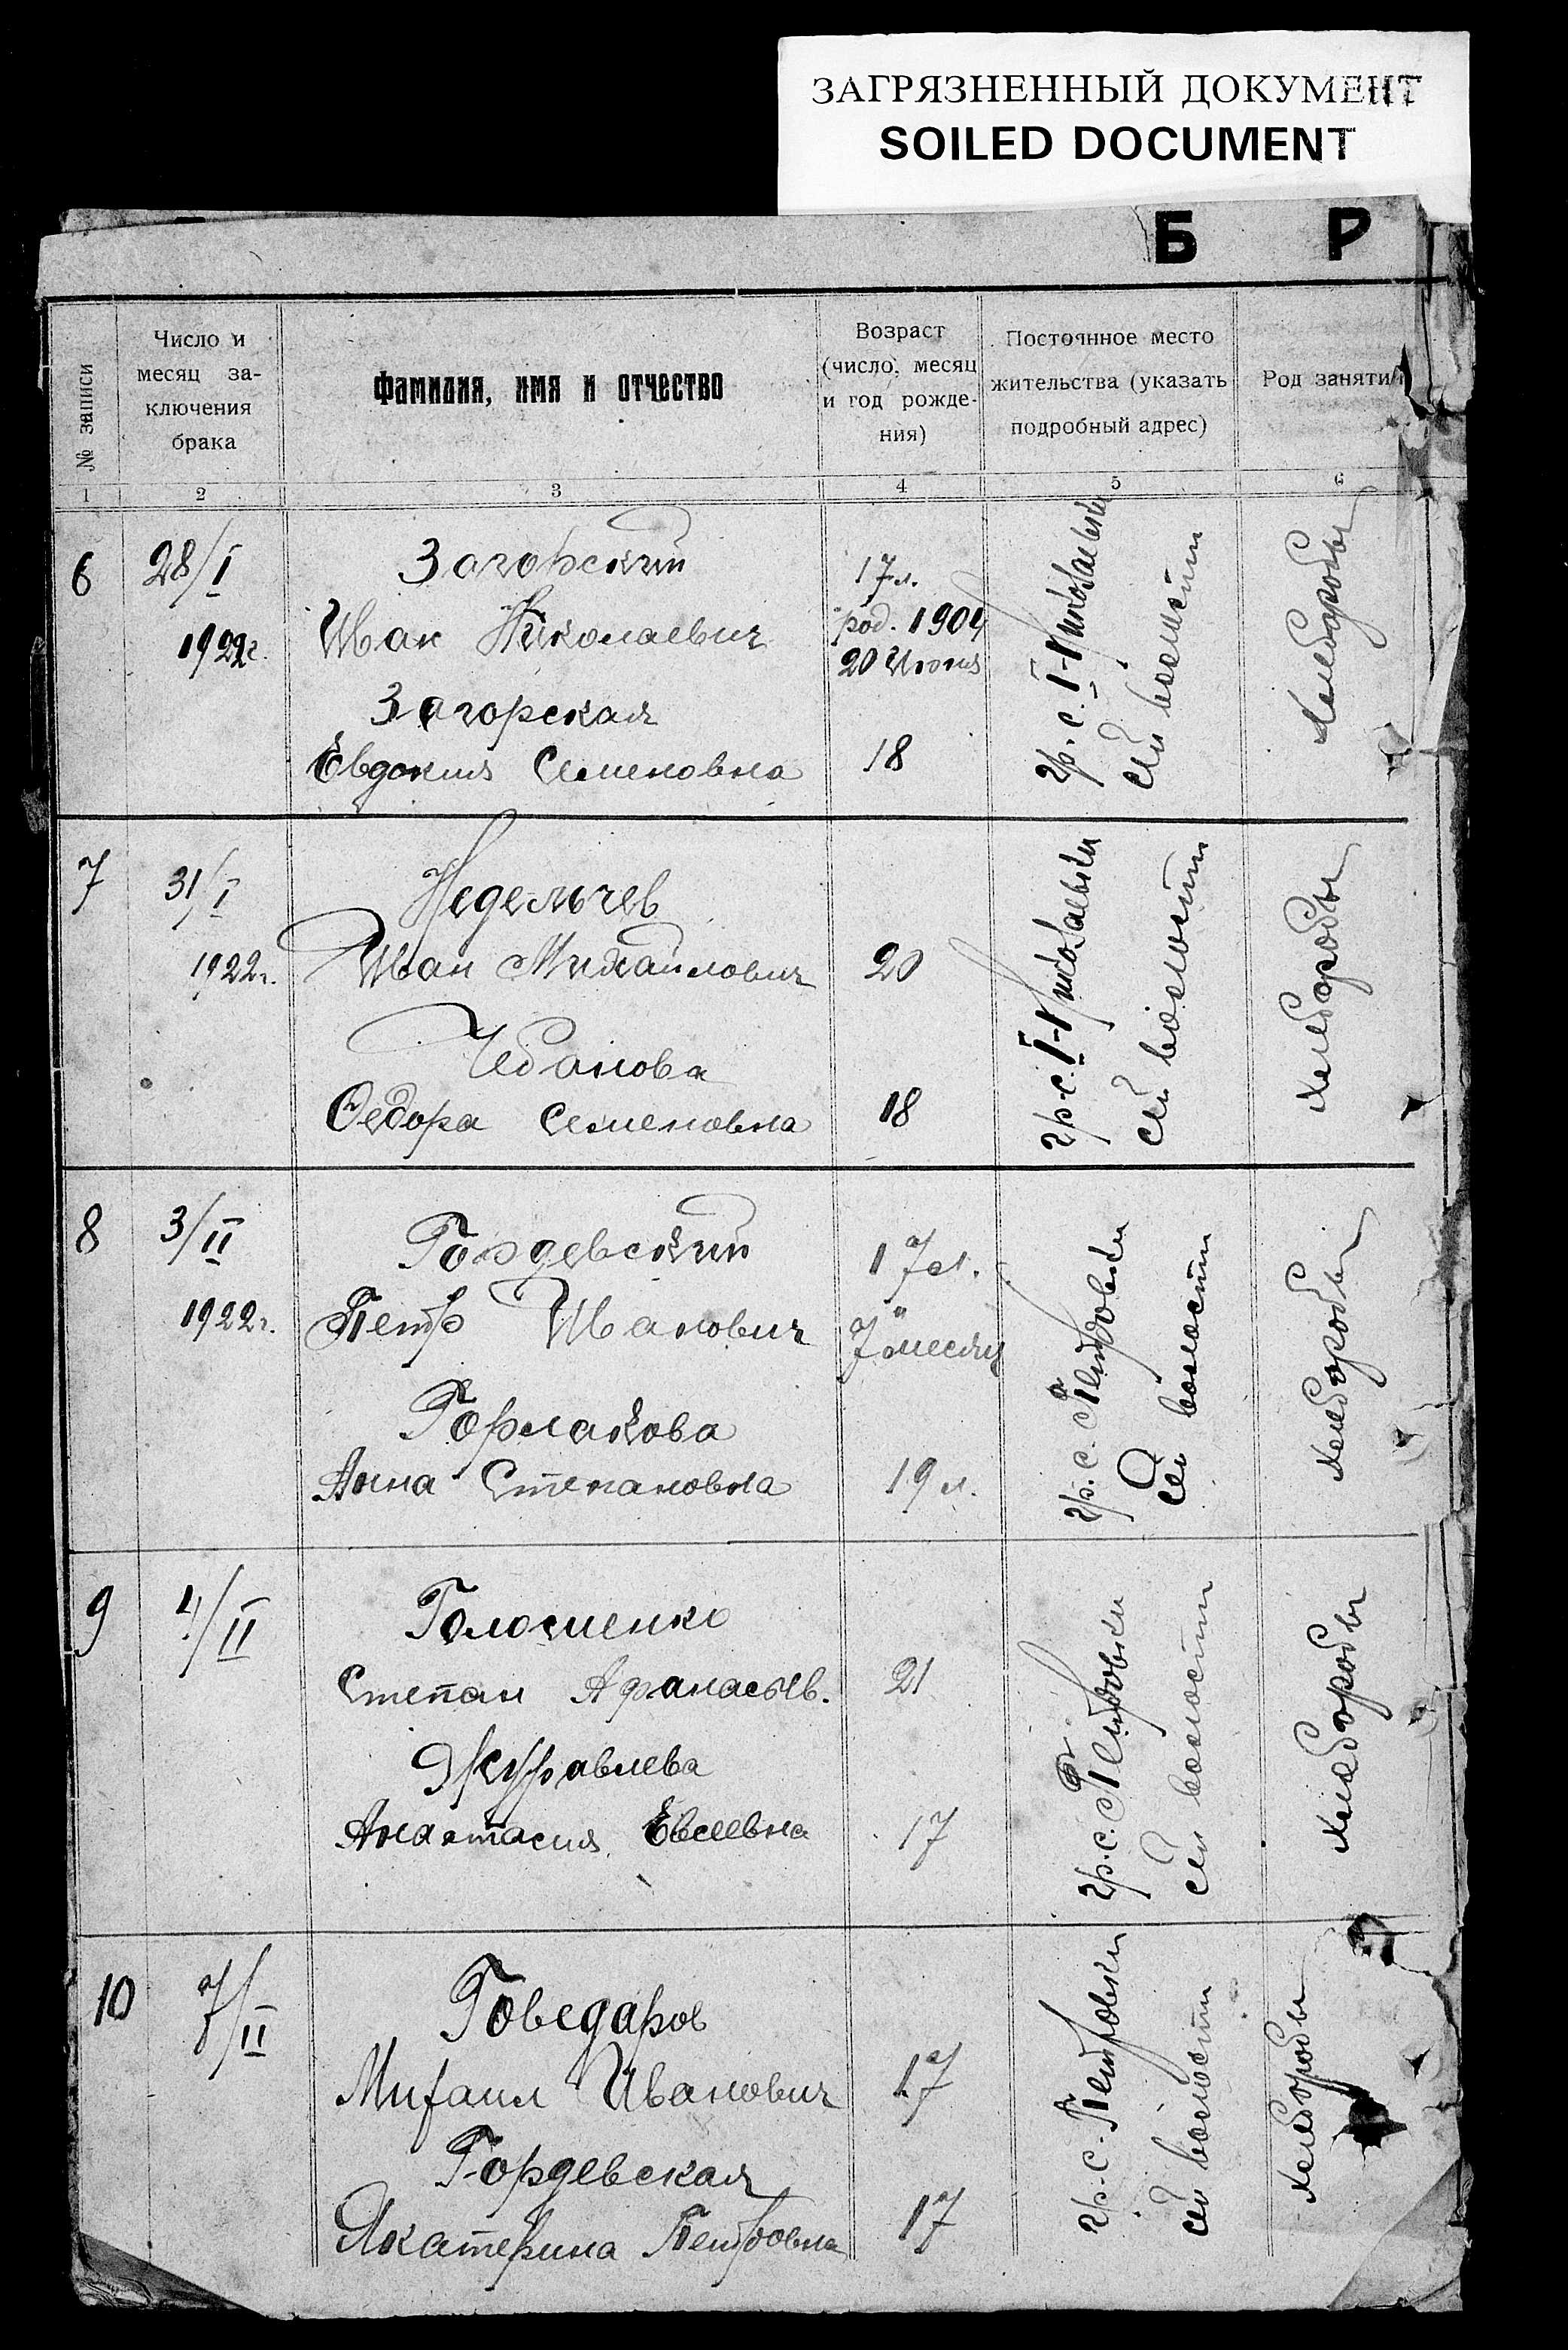 ЗАГРЯЗНЕННЫЙ ДОКУМЕНТ
SOILED DOCUMENT
Б Р
№ записи
Число и
месяц за-
ключения
брака
Фамилия, имя и отчество
Возраст
(число, месяц
и год рожде-
ния)
Постоянное место
жительства (указать
подробный адрес)
Род занятий
1 2 3 4 5 6
6
28/I
1922г.
Загорский
Иван Николаевич
Загорская
Евдокия Семеновна
17л.
род. 1904
20 Июня
18
гр. с. I-Николаевки
сей волости
Хлеборобы
7
31/I
1922г.
Недельчев
Иван Михайлович
Чебанова
Федора Семеновна
20
18
гр. с. I-Николаевки
сей волости
хлеборобы
8
3/II
1922г.
Гордевский
Петр Иванович
Горлакова
Анна Степановна
17л.
7 месяц
19 л.
гр. с. Петровки
сей волости
хлеборобы
9
4/II
Голосиенко
Степан Афанасьев.
Журавлева
Анастасия Евсеевна
21
17
гр. с. Петровки
сей волости
хлеборобы
10
7/II
Говедаров
Михаил Иванович
Гордевская
Екатерина Петровна
17
17
гр. с. Петровки
сей волости
хлеборобы